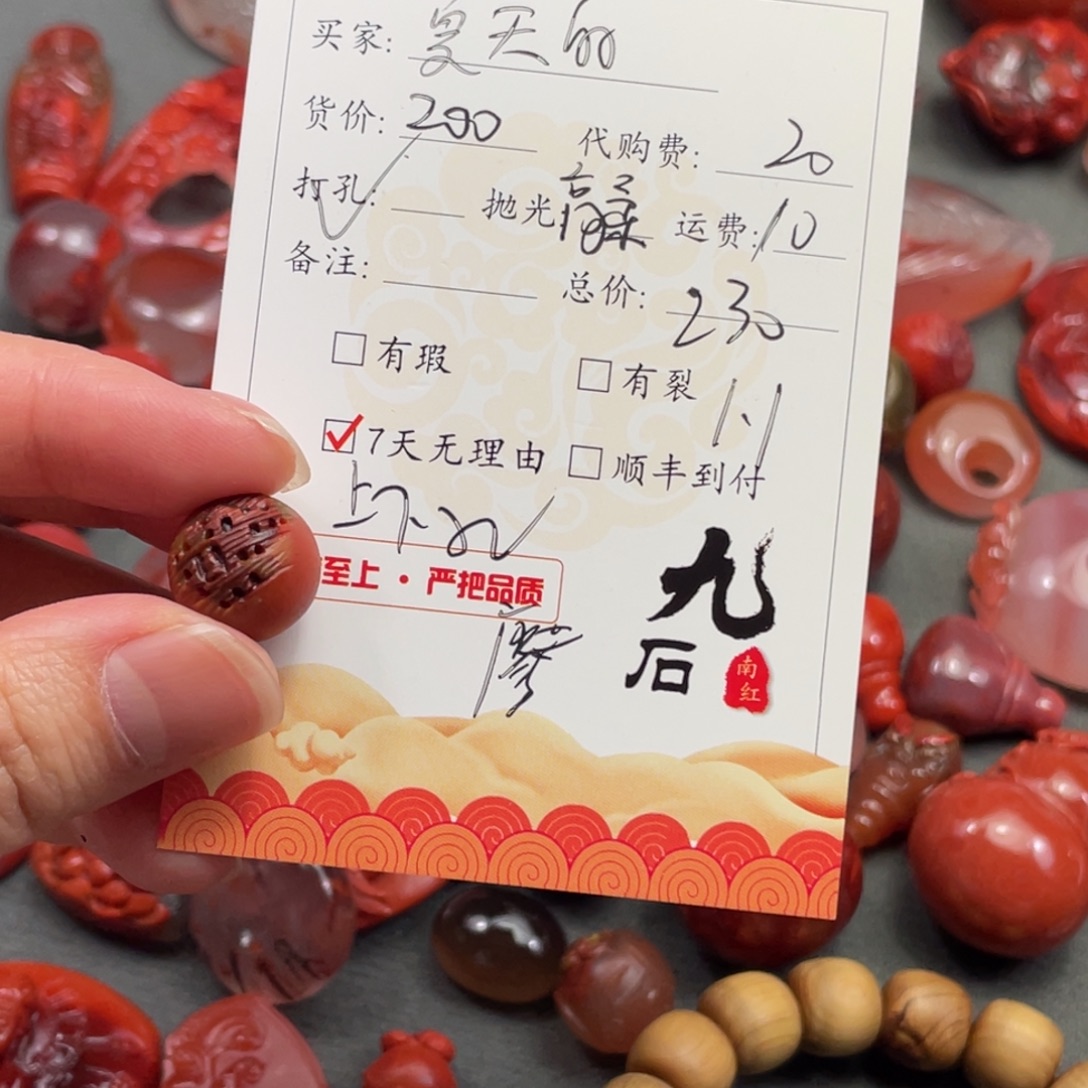 买家: 夏天的
货价: 200 代购费: 20
打孔: 抛光 运费: 10
备注: 总价: 230
□ 有瑕 □ 有裂
1.1
☑ 7天无理由 □ 顺丰到付
至上·严把品质
九
石
南
红
廖